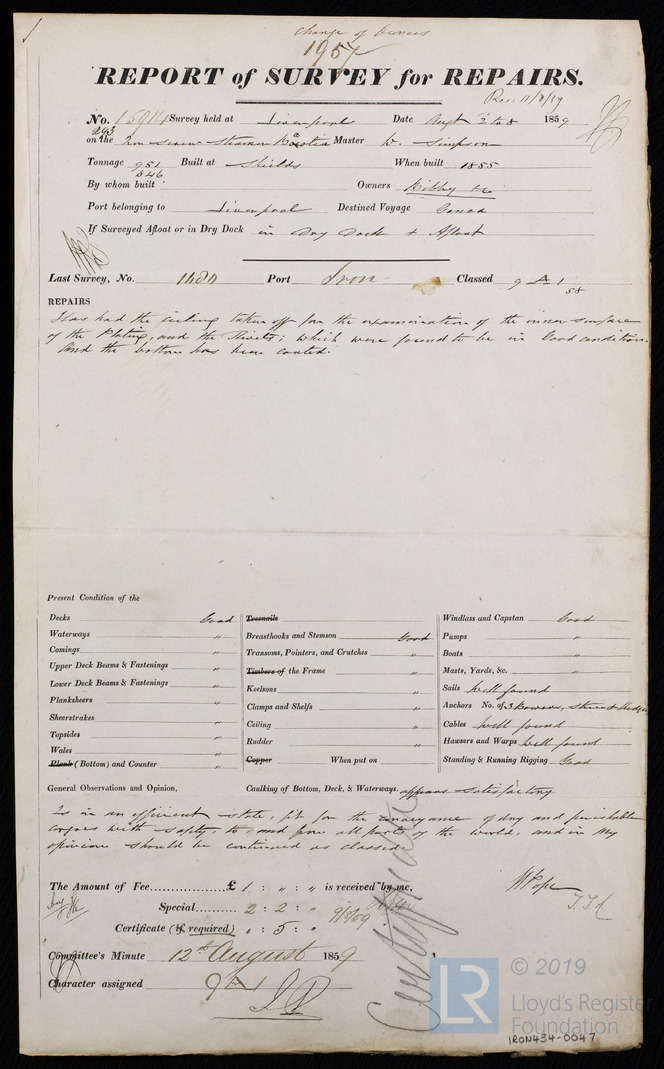 Change of Owners
1957
REPORT of SURVEY for REPAIRS.
Rec. 11/8/59
No. 15914 Survey held at Liverpool Date Augt 2 to 8 1859
on the Iron Screw Steamer Master W. Simpson
Tonnage 951 Built at Shields When built 1855
546
By whom built Owners Bibby & Co
Port belonging to Liverpool Destined Voyage Genoa
If Surveyed Afloat or in Dry Dock in Dry Dock & Afloat
Last Survey, No. Port Iron Classed 9 A 1
58
REPAIRS
Has had the ceiling taken off for the examination of the inner surface
of the Plating, and the Rivets; which were found to be in Good condition.
And the bottom has been coated.
Present Condition of the
Decks Good
Waterways "
Comings "
Upper Deck Beams & Fastenings "
Lower Deck Beams & Fastenings "
Planksheers "
Sheerstrakes "
Topsides "
Wales "
Plank (Bottom) and Counter "
Treenails
Breasthooks and Stemson Good
Transoms, Pointers, and Crutches "
Timbers of the Frame "
Keelsons "
Clamps and Shelfs "
Ceiling "
Rudder "
Copper When put on
Windlass and Capstan Good
Pumps "
Boats "
Masts, Yards, &c. "
Sails well found
Anchors No. of 3 Bowers, Stream & Kedge
Cables well found
Hawsers and Warps well found
Standing & Running Rigging Good
General Observations and Opinion, Caulking of Bottom, Deck, & Waterways, appears satisfactory
Is in an efficient state, fit for the conveyance of dry and perishable
cargoes with safety to, and from all parts of the world, and in my
opinion should be continued as classed.
The Amount of Fee £ 1 : " : " is received by me,
Special 2 : 2 : "
9/8/59
Certificate (if required) " : 5 : "
W Pope
Certificate
Committee's Minute 12th August 1859
Character assigned 9 A 1
LR
© 2019
Lloyd's Register
Foundation
IRON434-0047